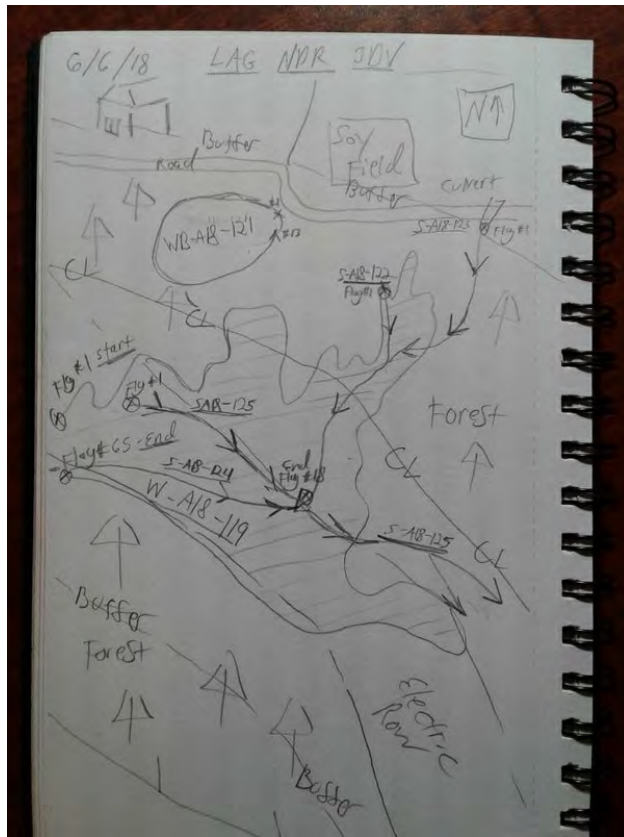 6/6/18 LAG NDR JDV
N↑
Buffer
Road
Soy
Field
Buffer
Culvert
S-A18-123
Flag #1
WB-A18-121
#1
#13
CL
CL
S-A18-122
Flag #1
Flag #1 start
Flag #1
SA18-125
Forest
Flag #65-End
S-A18-124
End
Flag #18
W-A18-119
CL
S-A18-125
CL
Buffer
Forest
Electric
Row
Buffer